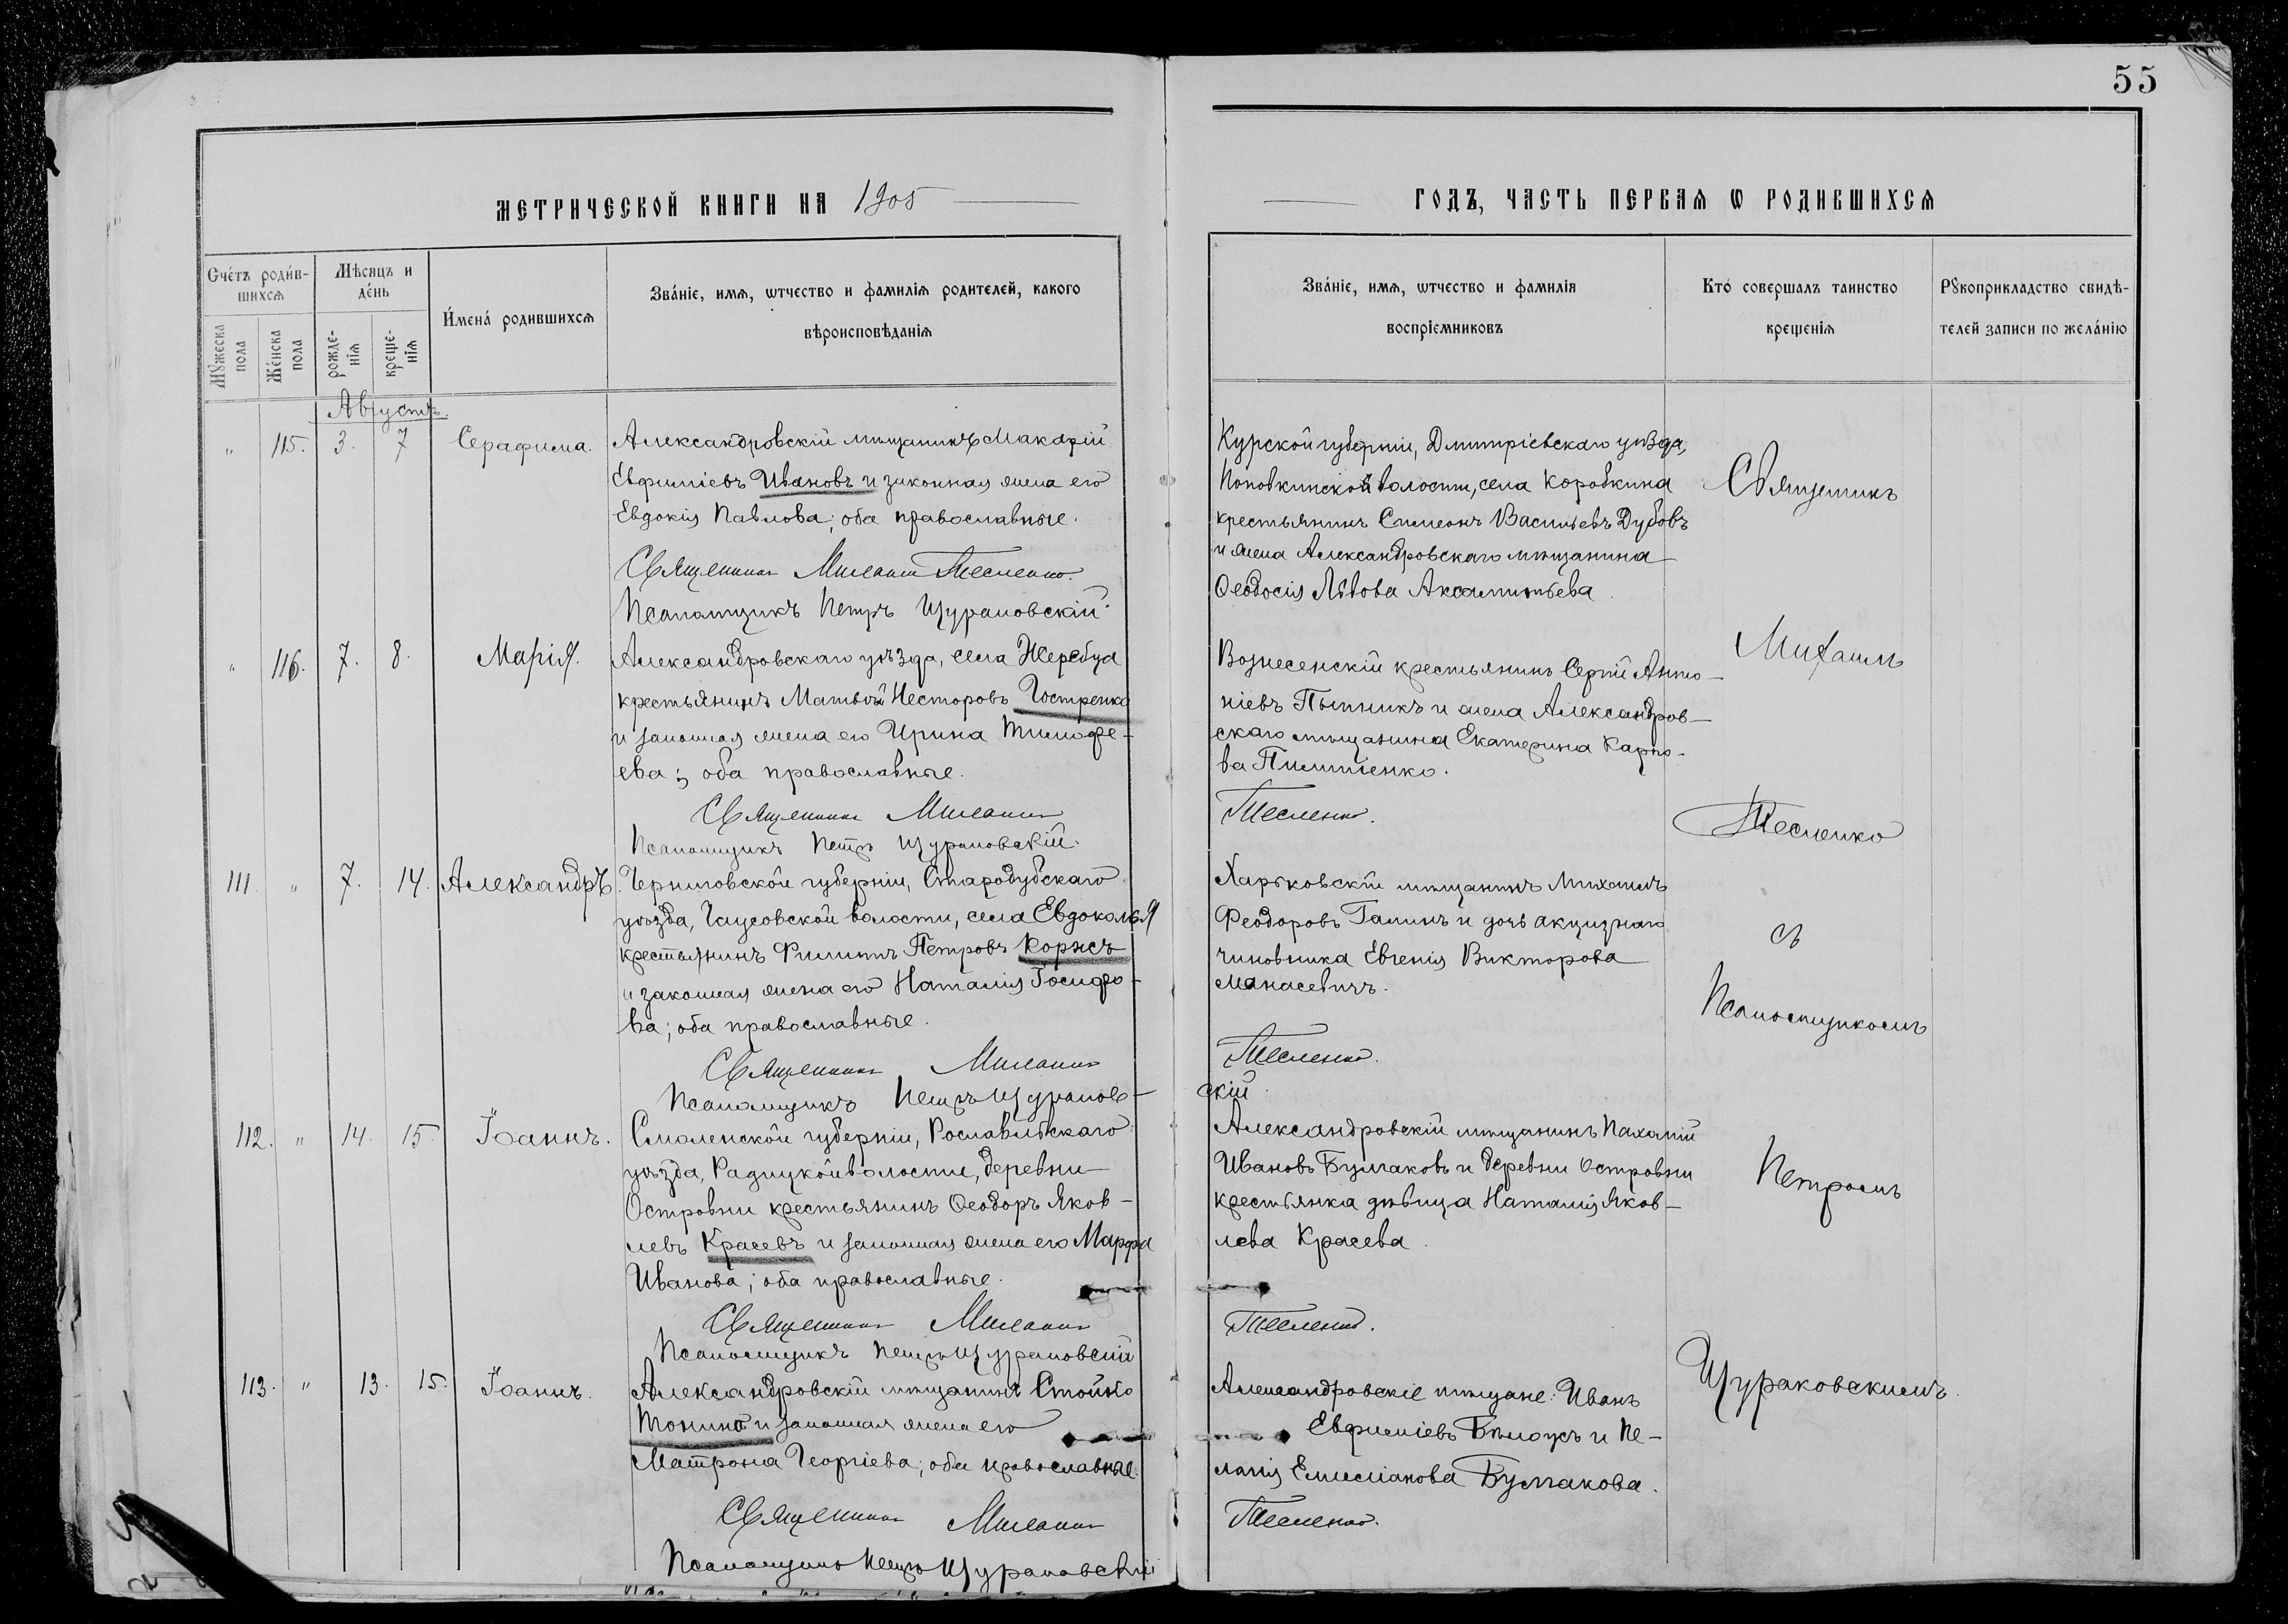 55
МЕТРИЧЕСКОЙ КНИГИ НА 1905
ГОДЪ, ЧАСТЬ ПЕРВАѦ Ѡ РОДИВШИХСѦ
Счётъ роди́в-
шихсѧ
Мѣсяцъ и
де́нь
Мꙋ́жеска
пола
Же́нска
пола
рожде-
нїѧ
креще-
нїѧ
И́мена́ родившихсѧ
Зва́нїе, имѧ, ѿчество и фамилїѧ родителей, какого
вѣроисповѣданїѧ
Зва́нїе, имѧ, ѿчество и фамилїѧ
воспрїемниковъ
Кто́ совершалъ таинство
крещенїѧ
Рꙋкоприкладство свидѣ-
телей записи по жела́нїю
Августъ.
" 115. 3. 7 Серафима.
Александровскій мѣщанинъ Макарій
Евфиміевъ Ивановъ и законная жена его
Евдокія Павлова; оба православные.
Священникъ Михаилъ Тесленко.
Псаломщикъ Петръ Щураковскій.
Курской губерніи, Дмитріевскаго уѣзда,
Поповкинской волости, села Коробкина
крестьянинъ Симеонъ Васильевъ Дубовъ
и жена Александровскаго мѣщанина
Ѳеодосія Львова Аксаментьева.
" 116. 7. 8. Марія.
Александровскаго уѣзда, села Жеребца
крестьянинъ Матѳей Несторовъ Гостренко
и законная жена его Ирина Тимофе-
ева; оба православные.
Священникъ Михаилъ
Псаломщикъ Петръ Щураковскій.
Вознесенскій крестьянинъ Сергій Анто-
ніевъ Пытникъ и жена Александров-
скаго мѣщанина Екатерина Карпо-
ва Пилипенко.
Тесленко.
111. " 7. 14. Александръ.
Черниговской губерніи, Стародубскаго
уѣзда, волости, села Евдоколья
крестьянинъ Филиппъ Петровъ Коржъ
и законная жена его Наталія Іосифо-
ва; оба православные.
Священникъ Михаилъ
Псаломщикъ Петръ Щураков-
Харьковскій мѣщанинъ Михаилъ
Феодоровъ Галинъ и дочь акцизнаго
чиновника Евгенія Викторова
Манасевичъ.
Тесленко.
скій
112. " 14. 15. Іоаннъ.
Смоленской губерніи, Рославльскаго
уѣзда, Радицкой волости, деревни
Островни крестьянинъ Ѳеодоръ Яков-
левъ Красевъ и законная жена его Марфа
Иванова; оба православные.
Священникъ Михаилъ
Псаломщикъ Петръ Щураковскій
Александровскій мѣщанинъ Пахомій
Ивановъ Булгаковъ и деревни Островни
крестьянка дѣвица Наталія Яков-
лева Красева.
Тесленко.
113. " 13. 15. Іоаннъ.
Александровскій мѣщанинъ Стойко
Тонино и законная жена его
Матрона Георгіева; оба православные.
Священникъ Михаилъ
Псаломщикъ Петръ Щураковскій
Александровскіе мѣщане: Иванъ
Евфиміевъ Бѣлоусъ и Пе-
лагія Емиліанова Булгакова.
Тесленко.
Священникъ
Михаилъ
Тесленко
съ
Псаломщикомъ
Петромъ
Щураковскимъ.